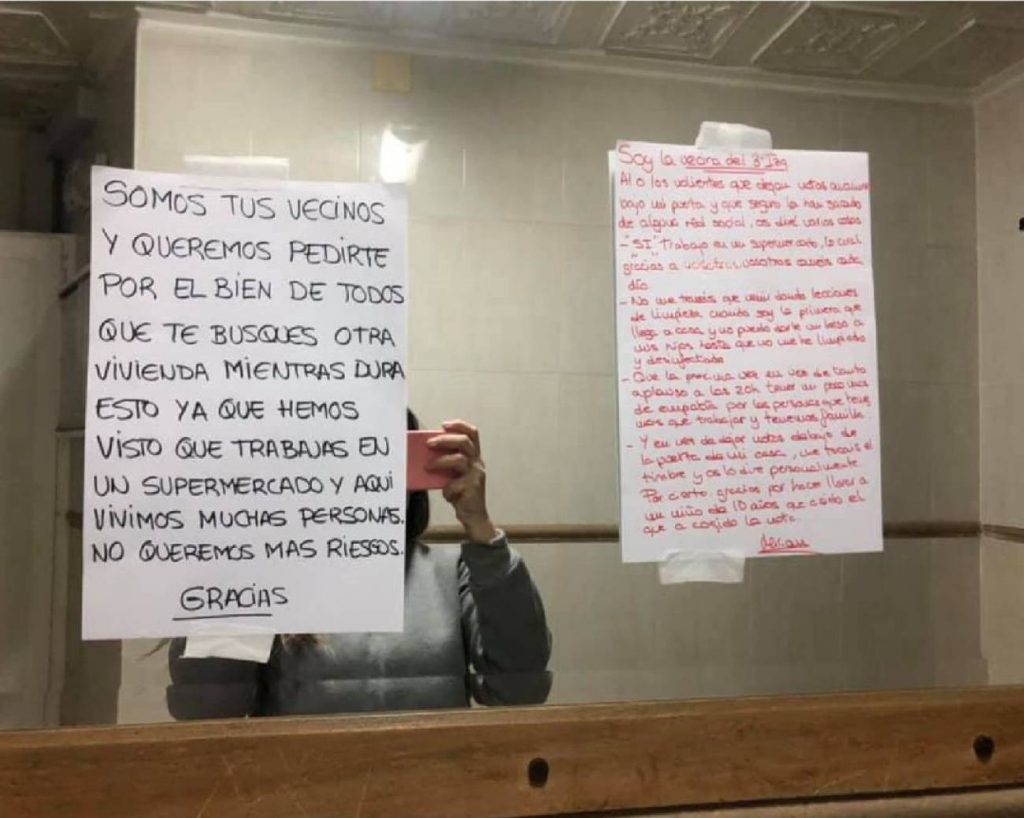 SOMOS TUS VECINOS
Y QUEREMOS PEDIRTE
POR EL BIEN DE TODOS
QUE TE BUSQUES OTRA
VIVIENDA MIENTRAS DURA
ESTO YA QUE HEMOS
VISTO QUE TRABAJAS EN
UN SUPERMERCADO Y AQUI
VIVIMOS MUCHAS PERSONAS.
NO QUEREMOS MAS RIESGOS.
GRACIAS
Soy la vecina del 3º Izq
Al o los valientes que dejan notas
bajo mi puerta y que seguro la han sacado
de alguna red social, os diré varias cosas
- "SI" Trabajo en un supermercado, lo cual
gracias a vosotros coméis cada
día
- No me tenéis que venir dando lecciones
de limpieza cuando soy la primera que
llega a casa, y no puedo darle un beso a
mis hijos hasta que no me he limpiado
y desinfectado
- Que la próxima vez en vez de tanto
aplauso a las 20h tener un poco mas
de empatía por las personas que tene
mos que trabajar y tenemos familia
- Y en vez de dejar notas debajo de
la puerta de mi casa, me tocais el
timbre y os lo dire personalmente.
Por cierto gracias por hacer llorar a
un niño de 10 años que a sido el
que a cogido la nota.
Miriam